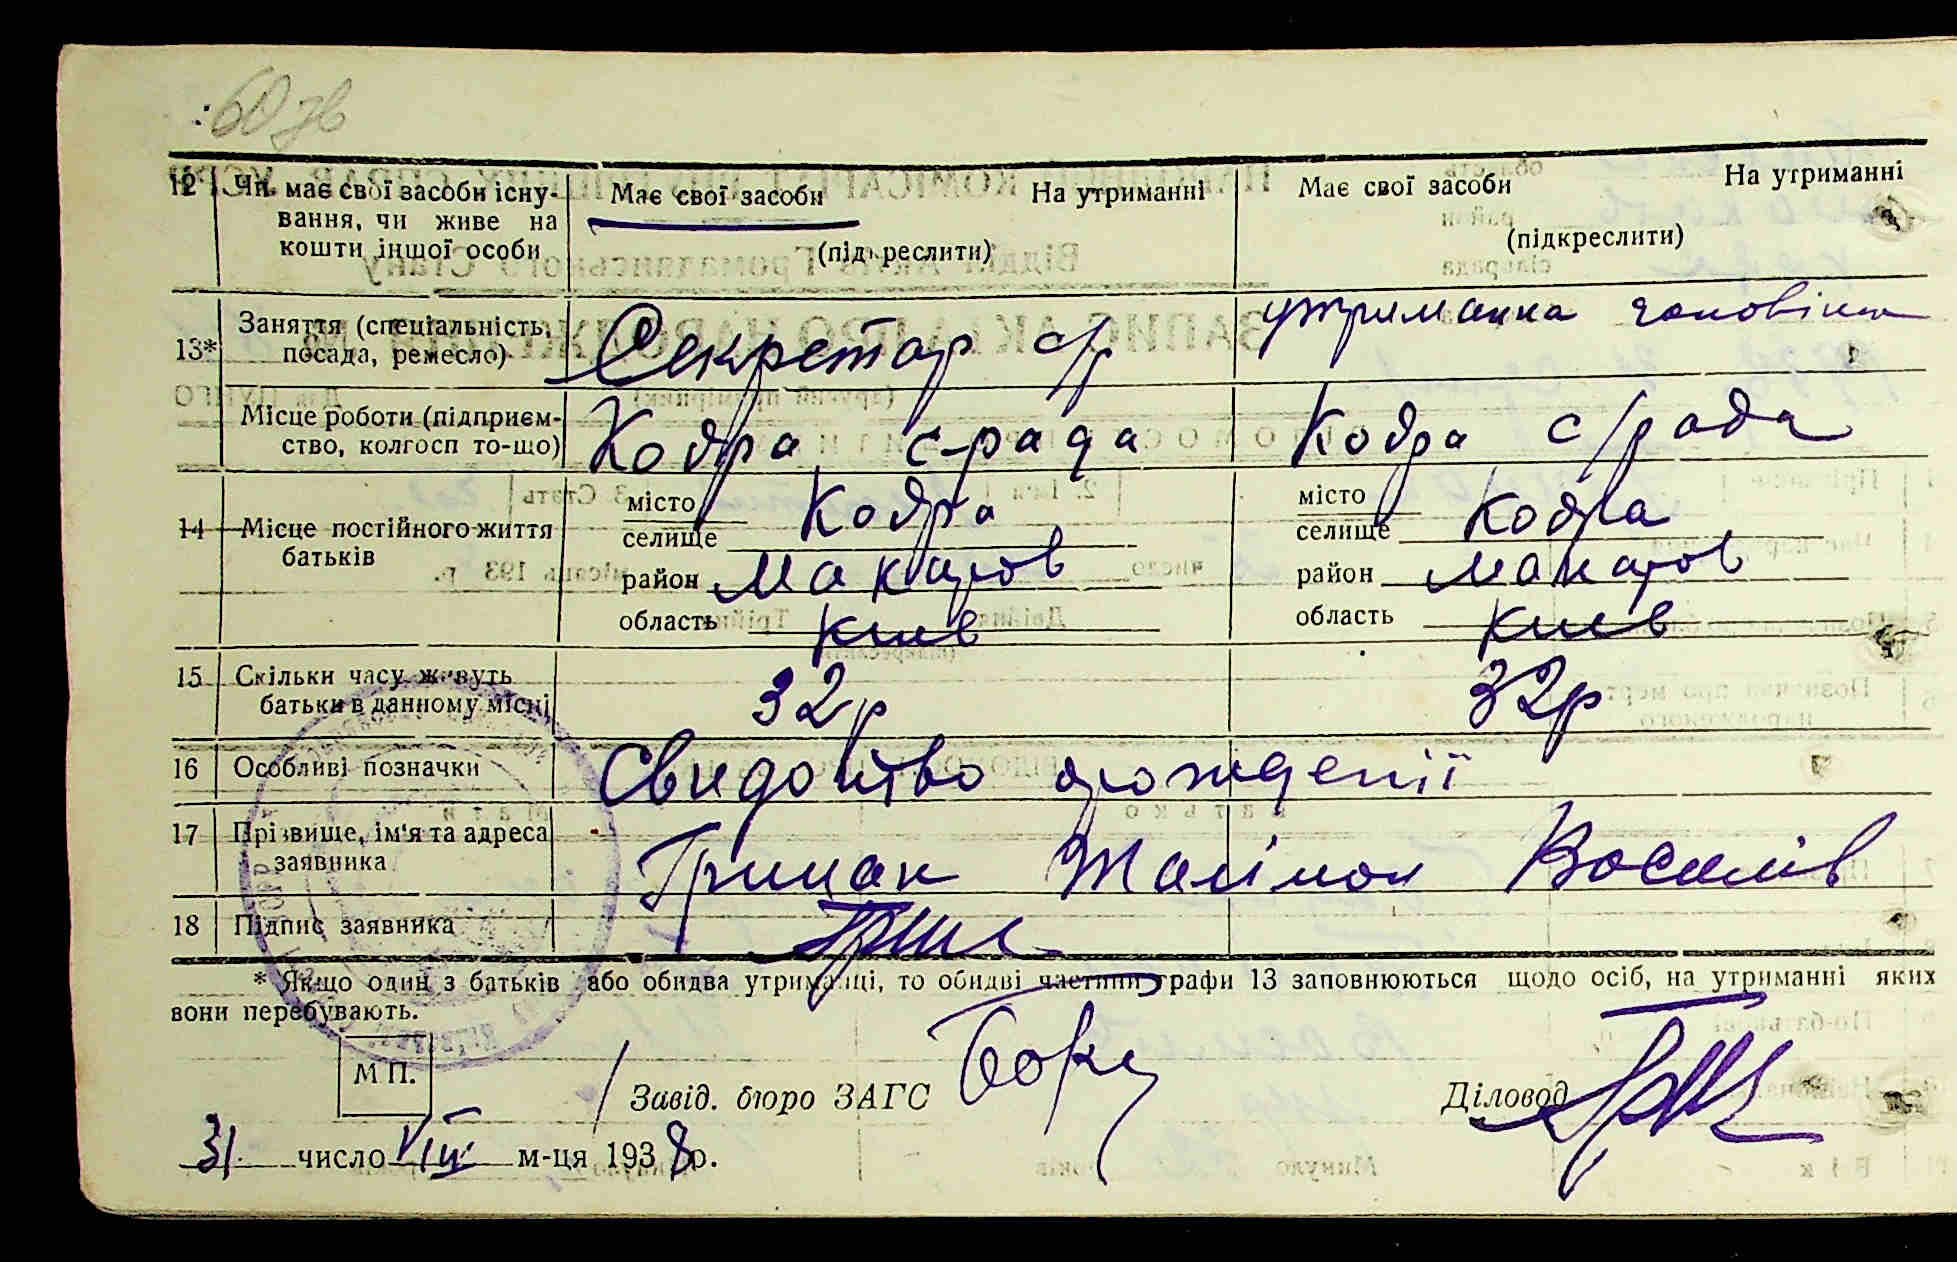 60 зв
12 Чи має свої засоби існу- Має свої засоби На утриманні Має свої засоби На утриманні
вання, чи живе на
кошти іншої особи (підкреслити) (підкреслити)
13* Заняття (спеціальність, Секретар с/р утриманка чоловіка
посада, ремесло)
Місце роботи (підприєм- Кодра с-рада Кодра с/рада
ство, колгосп то-що)
14 Місце постійного життя місто Кодра місто Кодра
батьків селище селище
район Макаров район Макаров
область Киев область Киев
15 Скільки часу живуть 32р 32р
батьки в данному місці
16 Особливі позначки Свидоитво орождении
17 Прізвище, ім'я та адреса Васелів
заявника
18 Підпис заявника
* Якщо один з батьків або обидва утриманці, то обидві частини графи 13 заповнюються щодо осіб, на утриманні яких
вони перебувають.
М П.
Завід. бюро ЗАГС Діловод
31 число VIII м-ця 1938 р.